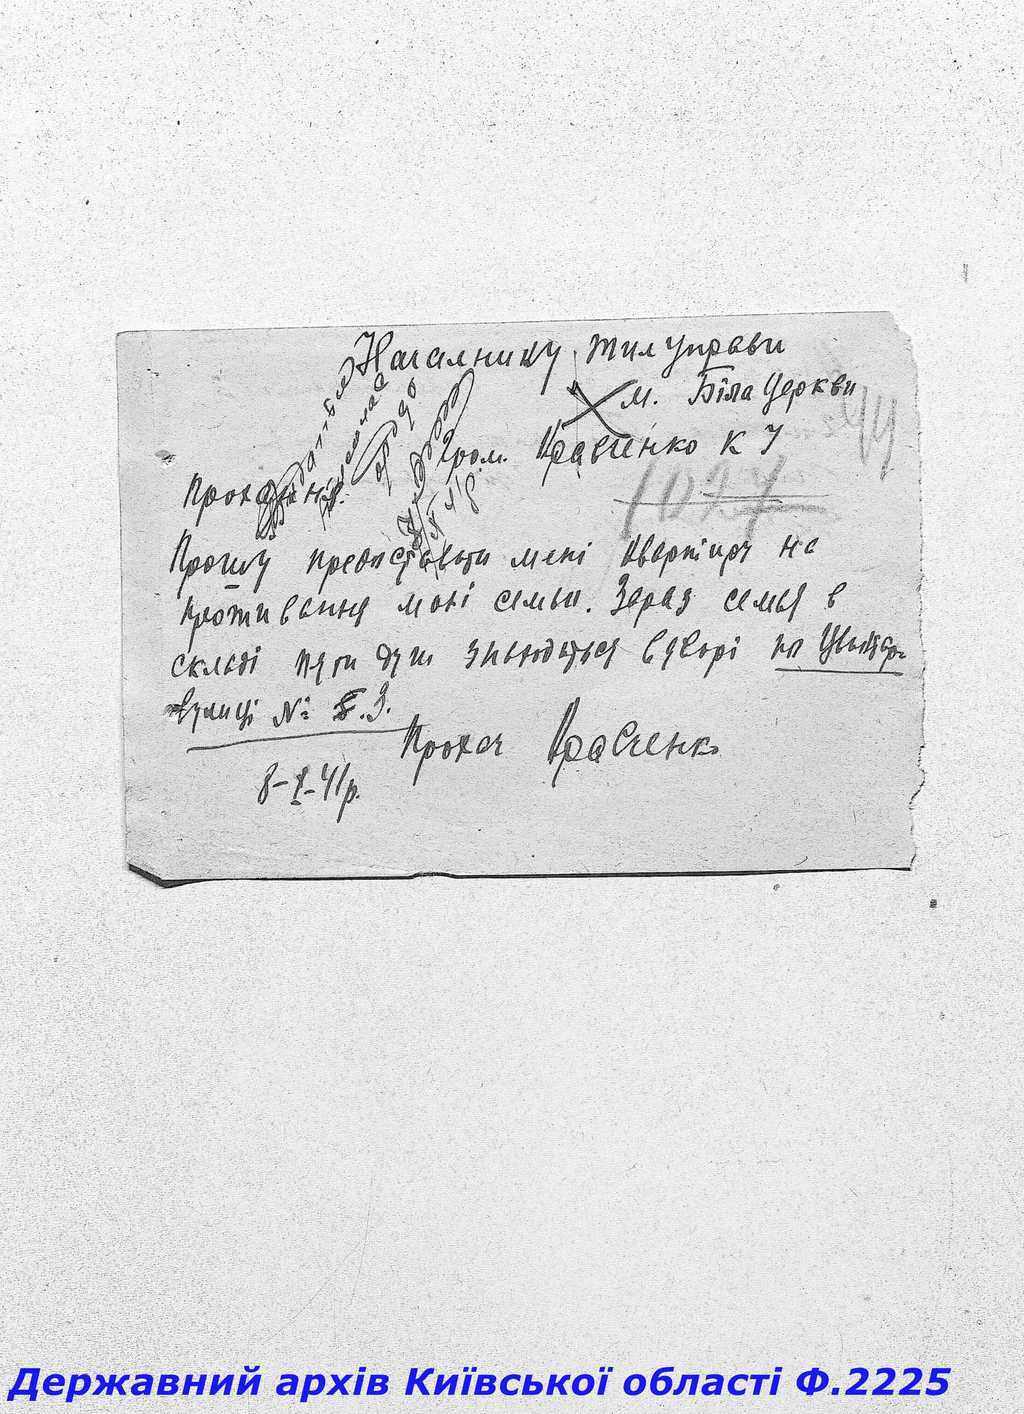 Началнику Жил управи
м. Біла Церкви
Гром. Кравченко К І
1027
Проханнє
Прошу предоставити мені квартиру на
проживання моні семьи. Зараз семья в
складі пяти душ знаходиться в дворі по
вулиці № 3.
Прохач Кравченко
8-X-41р.
Державний архів Київської області Ф.2225